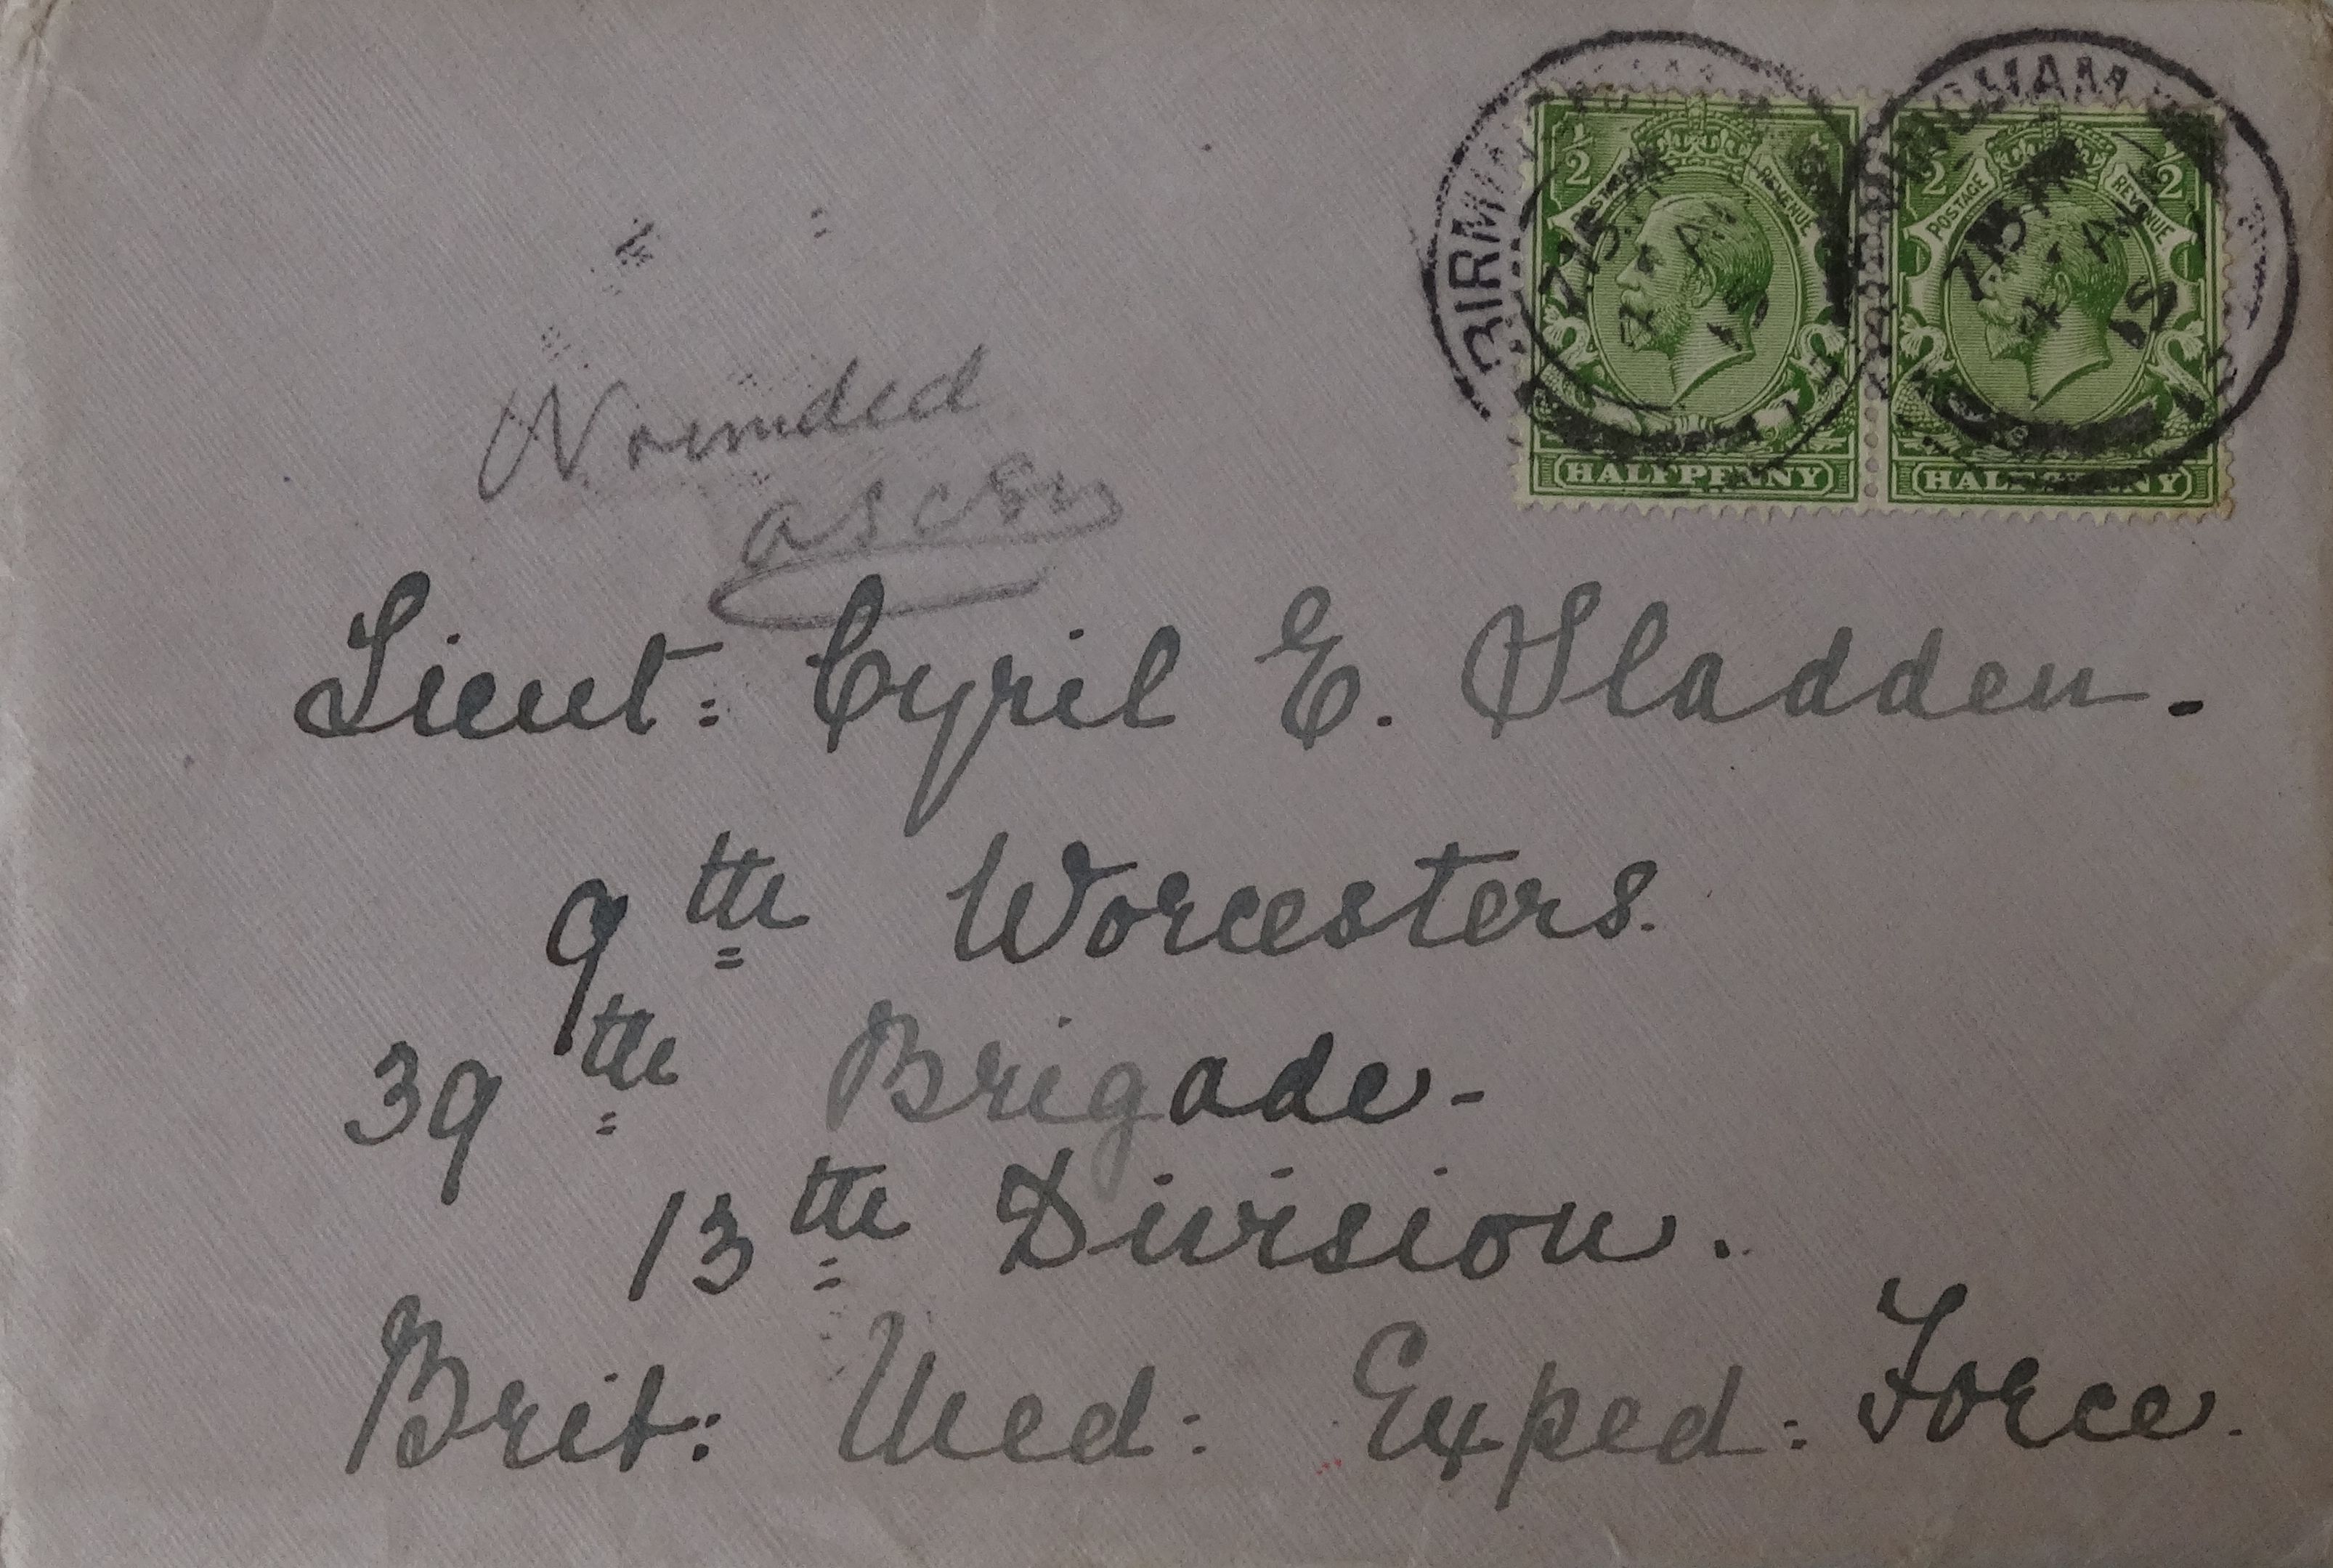 BIRMINGHAM
7.15 AM
4 AU
15
½ ½
POSTAGE REVENUE
HALFPENNY
½ ½
POSTAGE REVENUE
HALFPENNY
Wounded
Lieut: Cyril E. Sladden.
9th Worcesters.
39th Brigade-
13th Division.
Brit: Med: Exped: Force.